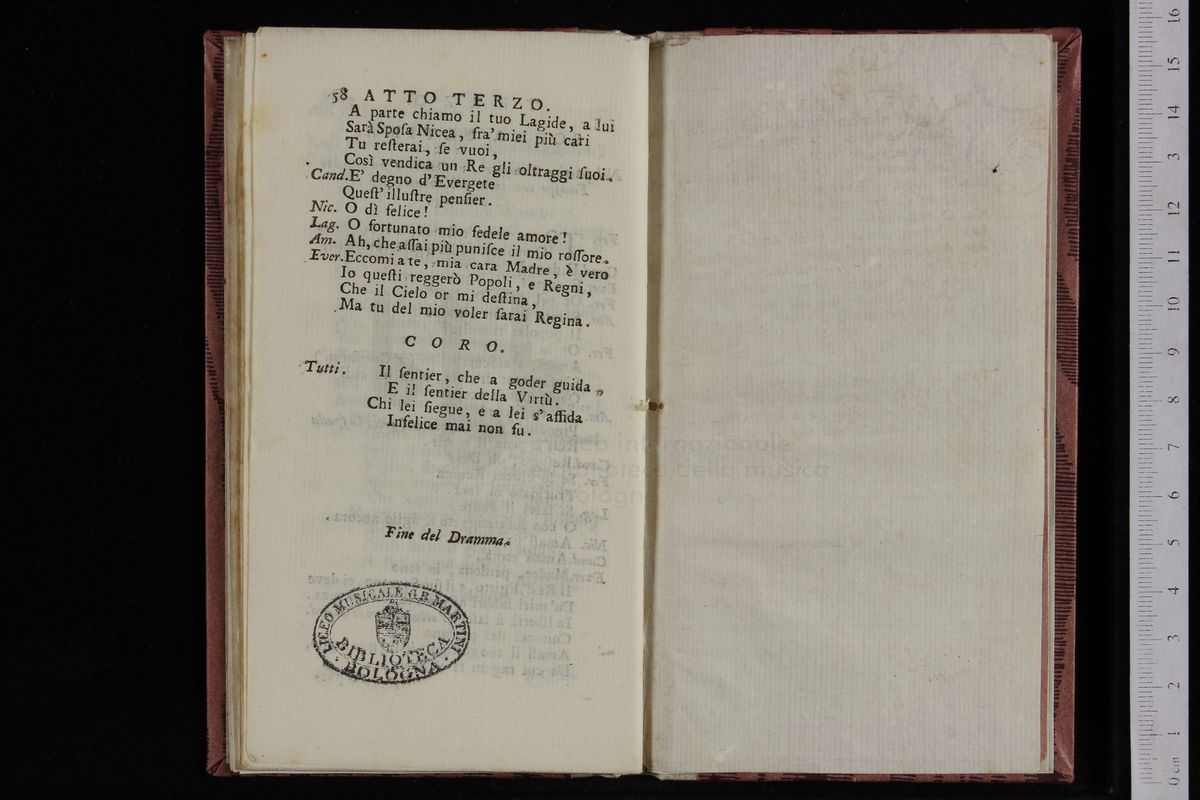 58 ATTO TERZO.
A parte chiamo il tuo Lagide, a lui
Sarà Spoſa Nicea, fra' miei più cari
Tu reſterai, ſe vuoi,
Così vendica un Re gli oltraggi ſuoi.
Cand. E' degno d'Evergete
Queſt' illuſtre penſier.
Nic. O dì felice!
Lag. O fortunato mio fedele amore!
Am. Ah, che aſſai più puniſce il mio roſſore.
Ever. Eccomi a te, mia cara Madre, è vero
Io queſti reggerò Popoli, e Regni,
Che il Cielo or mi deſtina,
Ma tu del mio voler ſarai Regina.
CORO.
Tutti. Il ſentier, che a goder guida,
E il ſentier della Virtù.
Chi lei ſiegue, e a lei s'affida
Infelice mai non fu.
Fine del Dramma.
LICEO MUSICALE G.B. MARTINI
BIBLIOTECA
BOLOGNA
museo internazionale
e biblioteca della musica
Bologna
16
15
14
13
12
11
10
9
8
7
6
5
4
3
2
1
0 cm